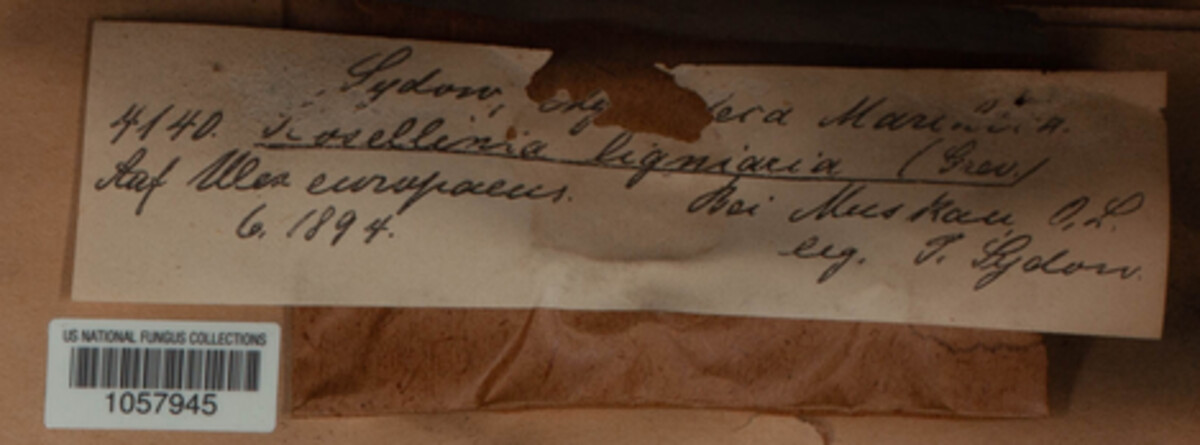 Sydow, Marchica.
4140. Rosellinia ligniaria (Grev.)
Auf Ulex europaeus. Bei Muskau, O.L.
6. 1894. leg. P. Sydow.
US NATIONAL FUNGUS COLLECTIONS
1057945